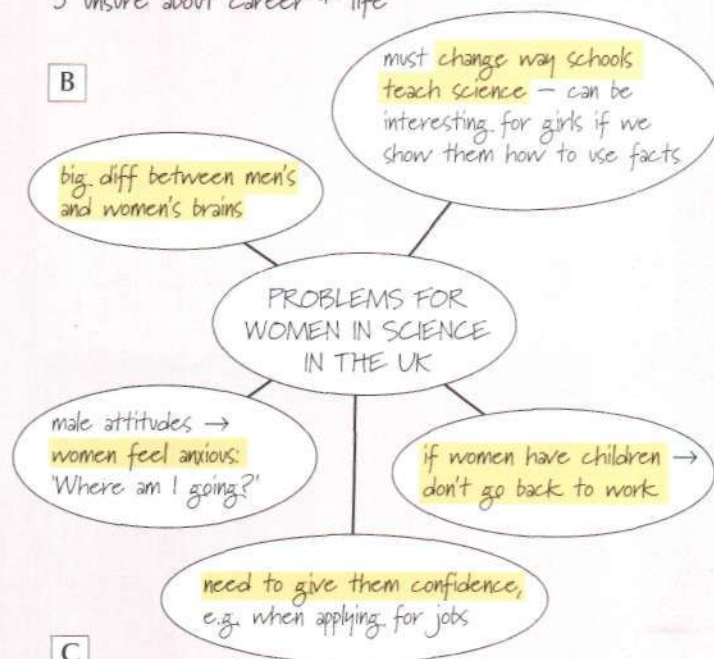 3 unsure about career + life
B
must change way schools
teach science – can be
interesting for girls if we
show them how to use facts
big diff between men's
and women's brains
PROBLEMS FOR
WOMEN IN SCIENCE
IN THE UK
male attitudes →
women feel anxious:
'Where am I going?'
if women have children →
don't go back to work
need to give them confidence,
e.g. when applying for jobs
C